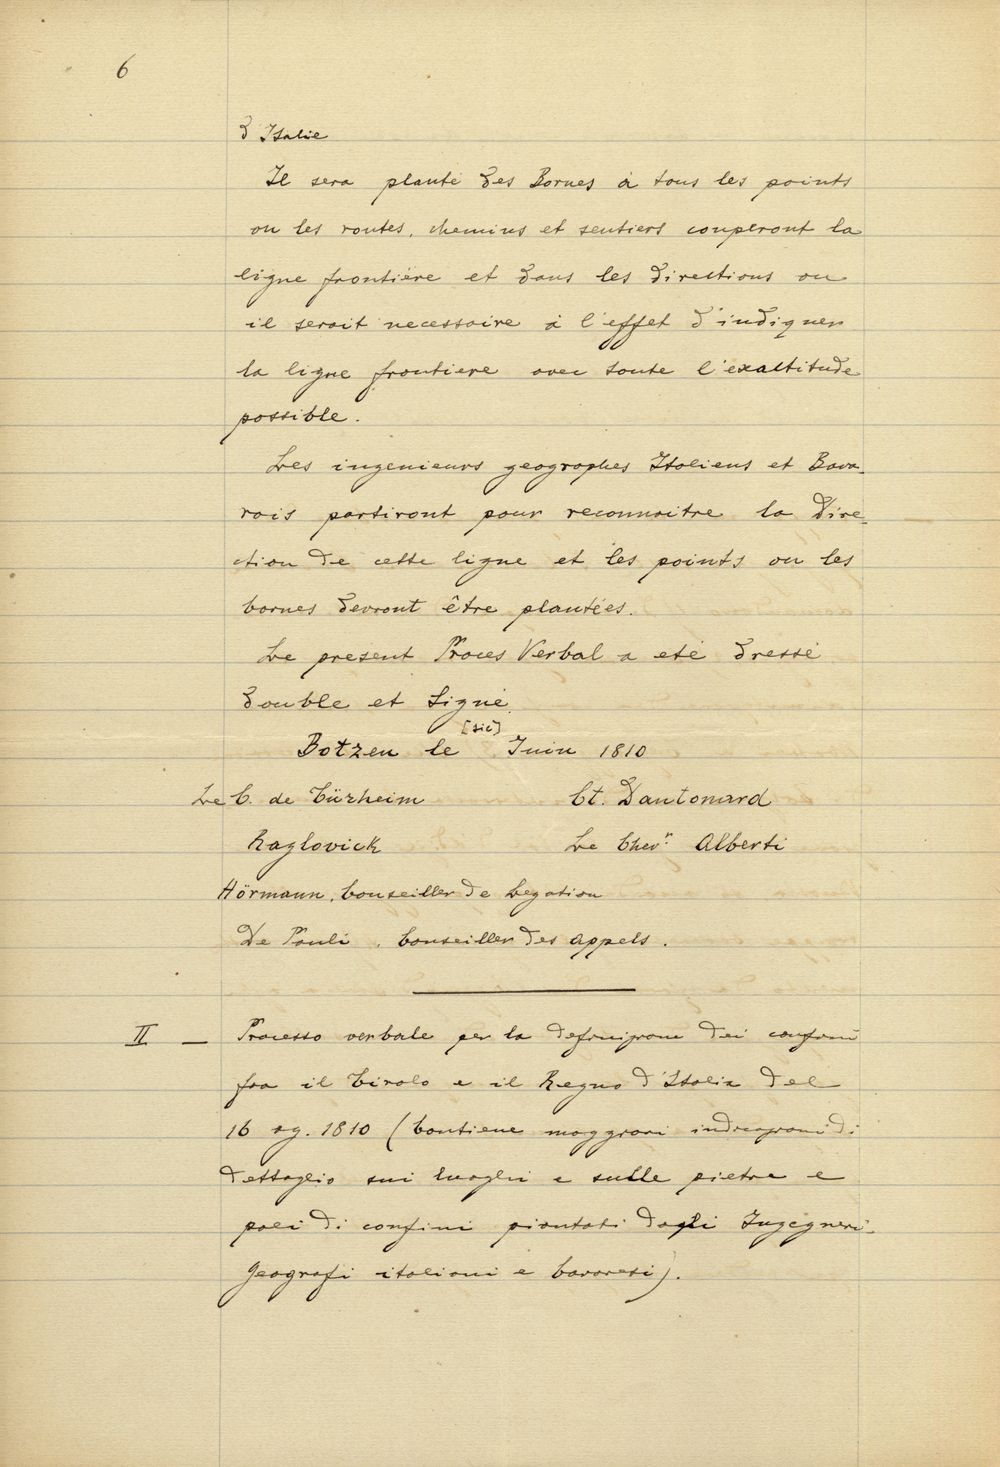 6
d'Italie
Il sera planté des Bornes à tous les points
ou les routes, chemins et sentiers couperont la
ligne frontière et dans les directions ou
il serait necessaire à l'effet d'indiquer
la ligne frontiere avec toute l'exactitude
possible.
Les ingenieurs geographes Italiens et Bava-
rois partiront pour reconnaitre la Dire-
ction de cette ligne et les points ou les
bornes devront être plantées.
Le present Proces Verbal a eté dressé
double et Signé
[sic]
Botzen le Juin 1810
Le C. de Türheim Ct. Dantonard
Raglovick Le Chev.r Alberti
Hörmann, Conseiller de Legation
De Pauli, Conseiller des appels.
II — Processo verbale per la definizione dei confini
fra il Tirolo e il Regno d'Italia del
16 ag. 1810 (Contiene maggiori indicazioni di
dettaglio sui luoghi e sulle pietre e
pali di confini piantati dagli Ingegneri-
geografi italiani e bavaresi).